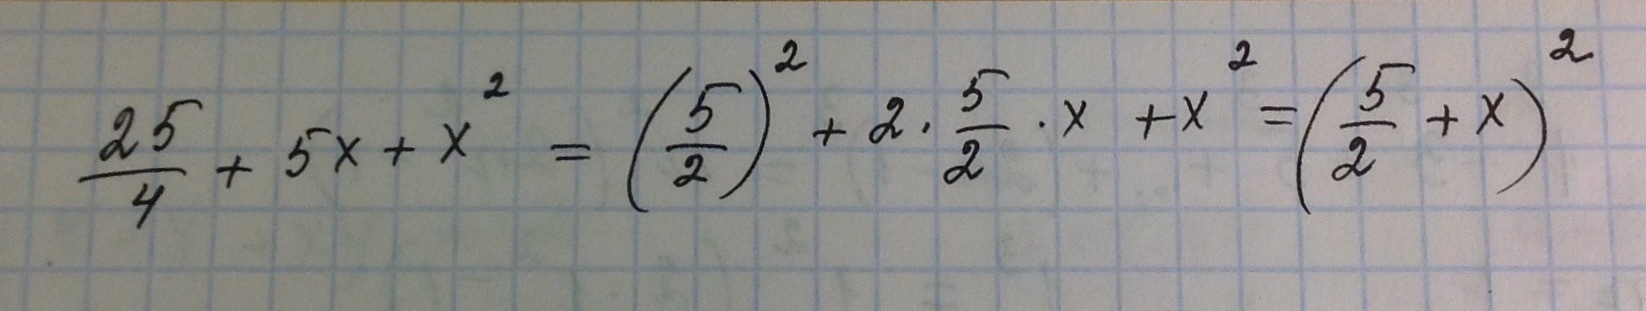 25/4 + 5x + x² = (5/2)² + 2 · 5/2 · x + x² = (5/2 + x)²